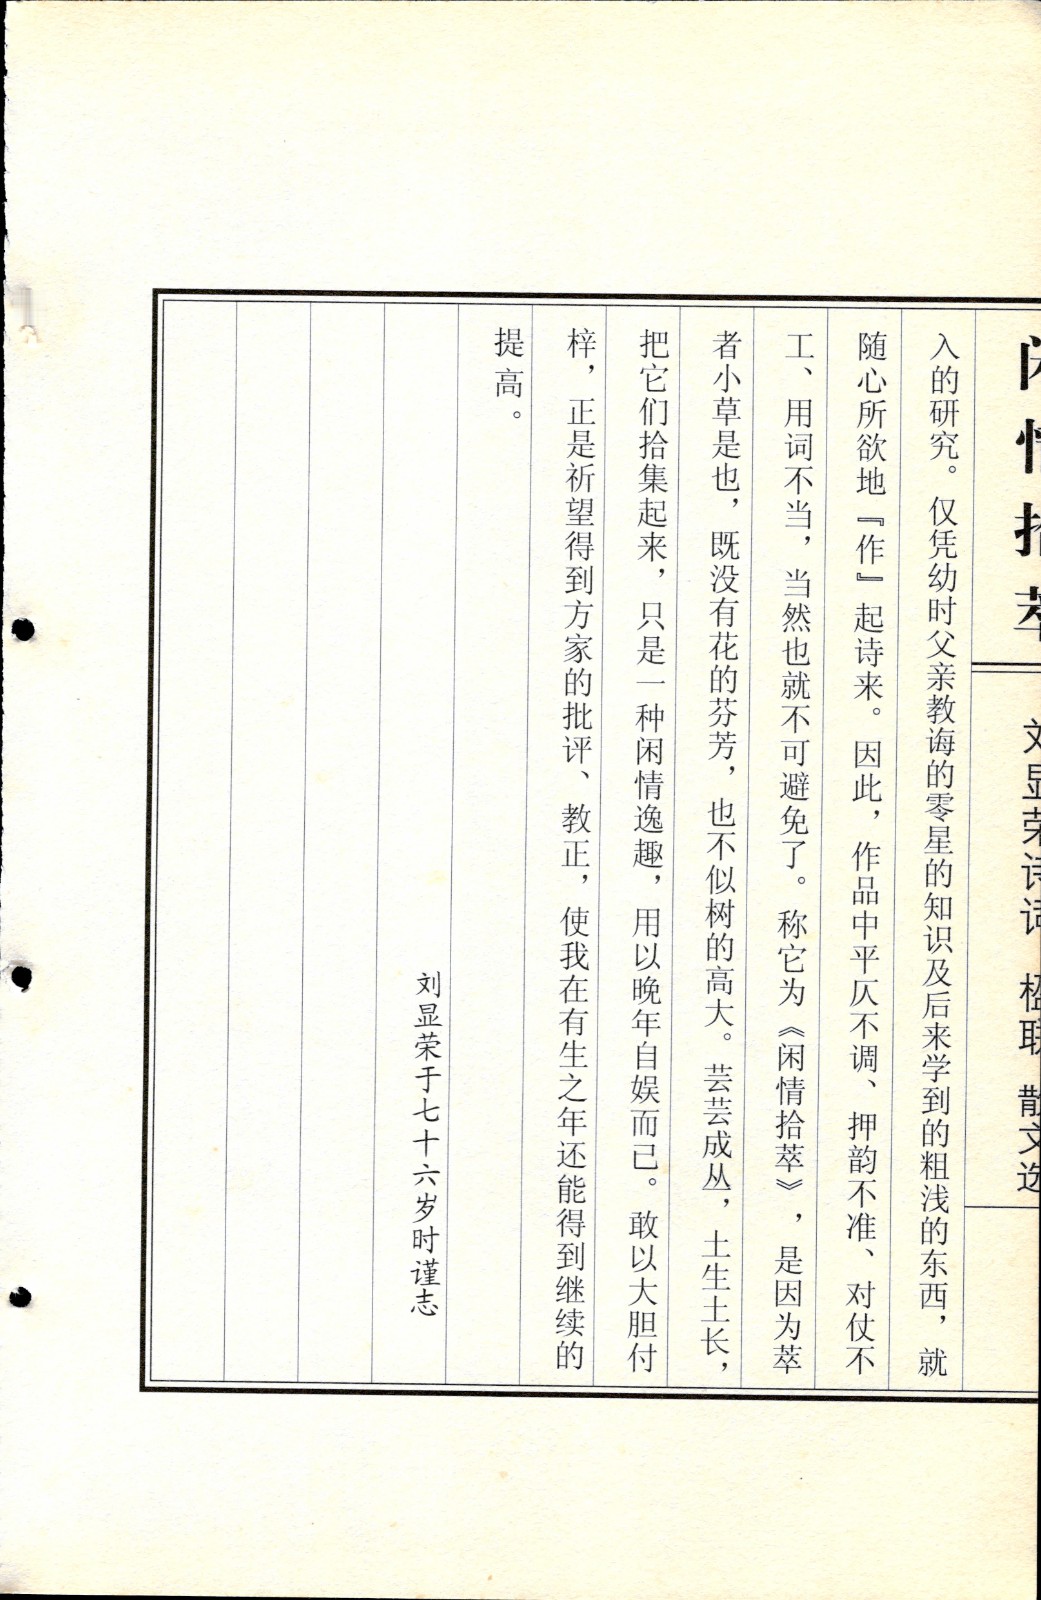 闲情拾萃
刘显荣诗词 楹联 散文选
入的研究。仅凭幼时父亲教诲的零星的知识及后来学到的粗浅的东西，就
随心所欲地『作』起诗来。因此，作品中平仄不调、押韵不准、对仗不
工、用词不当，当然也就不可避免了。称它为《闲情拾萃》，是因为萃
者小草是也，既没有花的芬芳，也不似树的高大。芸芸成丛，土生土长，
把它们拾集起来，只是一种闲情逸趣，用以晚年自娱而已。敢以大胆付
梓，正是祈望得到方家的批评、教正，使我在有生之年还能得到继续的
提高。
刘显荣于七十六岁时谨志